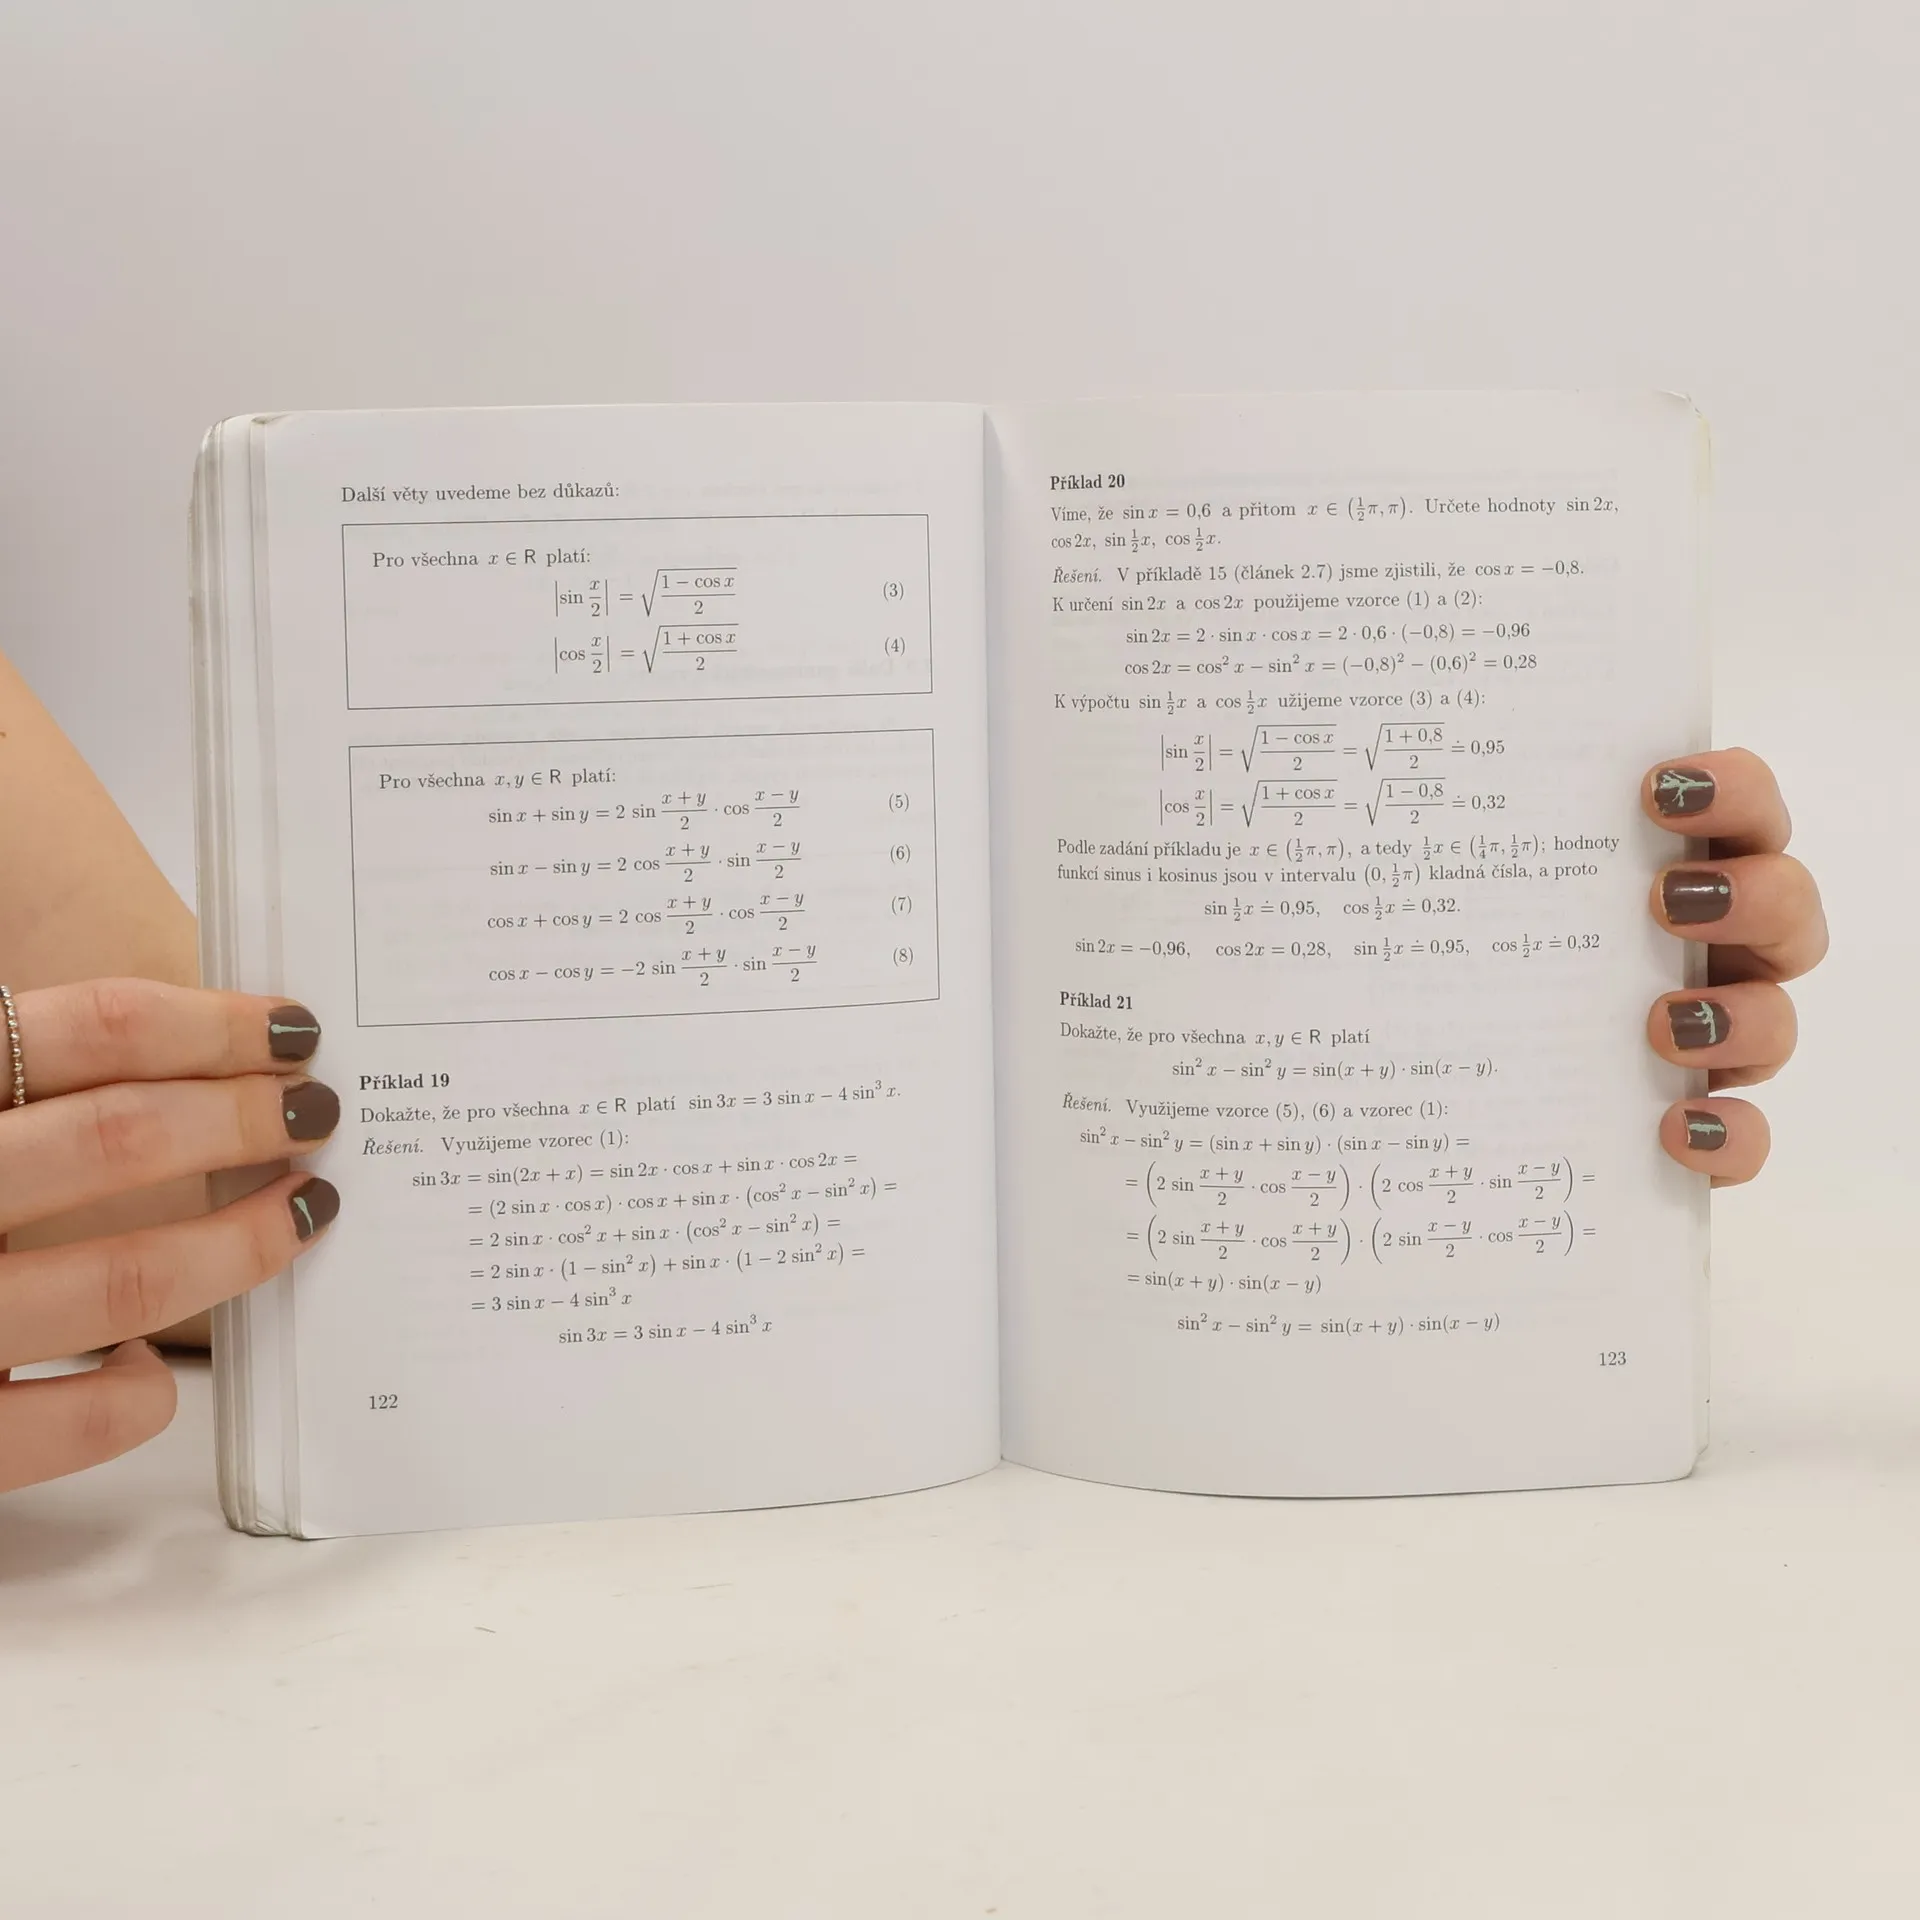 Další věty uvedeme bez důkazů:
Pro všechna x ∈ R platí:
|sin x/2| = √((1 − cos x)/2) (3)
|cos x/2| = √((1 + cos x)/2) (4)
Pro všechna x, y ∈ R platí:
sin x + sin y = 2 sin (x + y)/2 · cos (x − y)/2 (5)
sin x − sin y = 2 cos (x + y)/2 · sin (x − y)/2 (6)
cos x + cos y = 2 cos (x + y)/2 · cos (x − y)/2 (7)
cos x − cos y = −2 sin (x + y)/2 · sin (x − y)/2 (8)
Příklad 19
Dokažte, že pro všechna x ∈ R platí sin 3x = 3 sin x − 4 sin³ x.
Řešení. Využijeme vzorec (1):
sin 3x = sin(2x + x) = sin 2x · cos x + sin x · cos 2x =
= (2 sin x · cos x) · cos x + sin x · (cos² x − sin² x) =
= 2 sin x · cos² x + sin x · (cos² x − sin² x) =
= 2 sin x · (1 − sin² x) + sin x · (1 − 2 sin² x) =
= 3 sin x − 4 sin³ x
sin 3x = 3 sin x − 4 sin³ x
122
Příklad 20
Víme, že sin x = 0,6 a přitom x ∈ (½π, π). Určete hodnoty sin 2x,
cos 2x, sin ½x, cos ½x.
Řešení. V příkladě 15 (článek 2.7) jsme zjistili, že cos x = −0,8.
K určení sin 2x a cos 2x použijeme vzorce (1) a (2):
sin 2x = 2 · sin x · cos x = 2 · 0,6 · (−0,8) = −0,96
cos 2x = cos² x − sin² x = (−0,8)² − (0,6)² = 0,28
K výpočtu sin ½x a cos ½x užijeme vzorce (3) a (4):
|sin x/2| = √((1 − cos x)/2) = √((1 + 0,8)/2) ≐ 0,95
|cos x/2| = √((1 + cos x)/2) = √((1 − 0,8)/2) ≐ 0,32
Podle zadání příkladu je x ∈ (½π, π), a tedy ½x ∈ (¼π, ½π); hodnoty
funkcí sinus i kosinus jsou v intervalu (0, ½π) kladná čísla, a proto
sin ½x ≐ 0,95, cos ½x ≐ 0,32.
sin 2x = −0,96, cos 2x = 0,28, sin ½x ≐ 0,95, cos ½x ≐ 0,32
Příklad 21
Dokažte, že pro všechna x, y ∈ R platí
sin² x − sin² y = sin(x + y) · sin(x − y).
Řešení. Využijeme vzorce (5), (6) a vzorec (1):
sin² x − sin² y = (sin x + sin y) · (sin x − sin y) =
= (2 sin (x + y)/2 · cos (x − y)/2) · (2 cos (x + y)/2 · sin (x − y)/2) =
= (2 sin (x + y)/2 · cos (x + y)/2) · (2 sin (x − y)/2 · cos (x − y)/2) =
= sin(x + y) · sin(x − y)
sin² x − sin² y = sin(x + y) · sin(x − y)
123